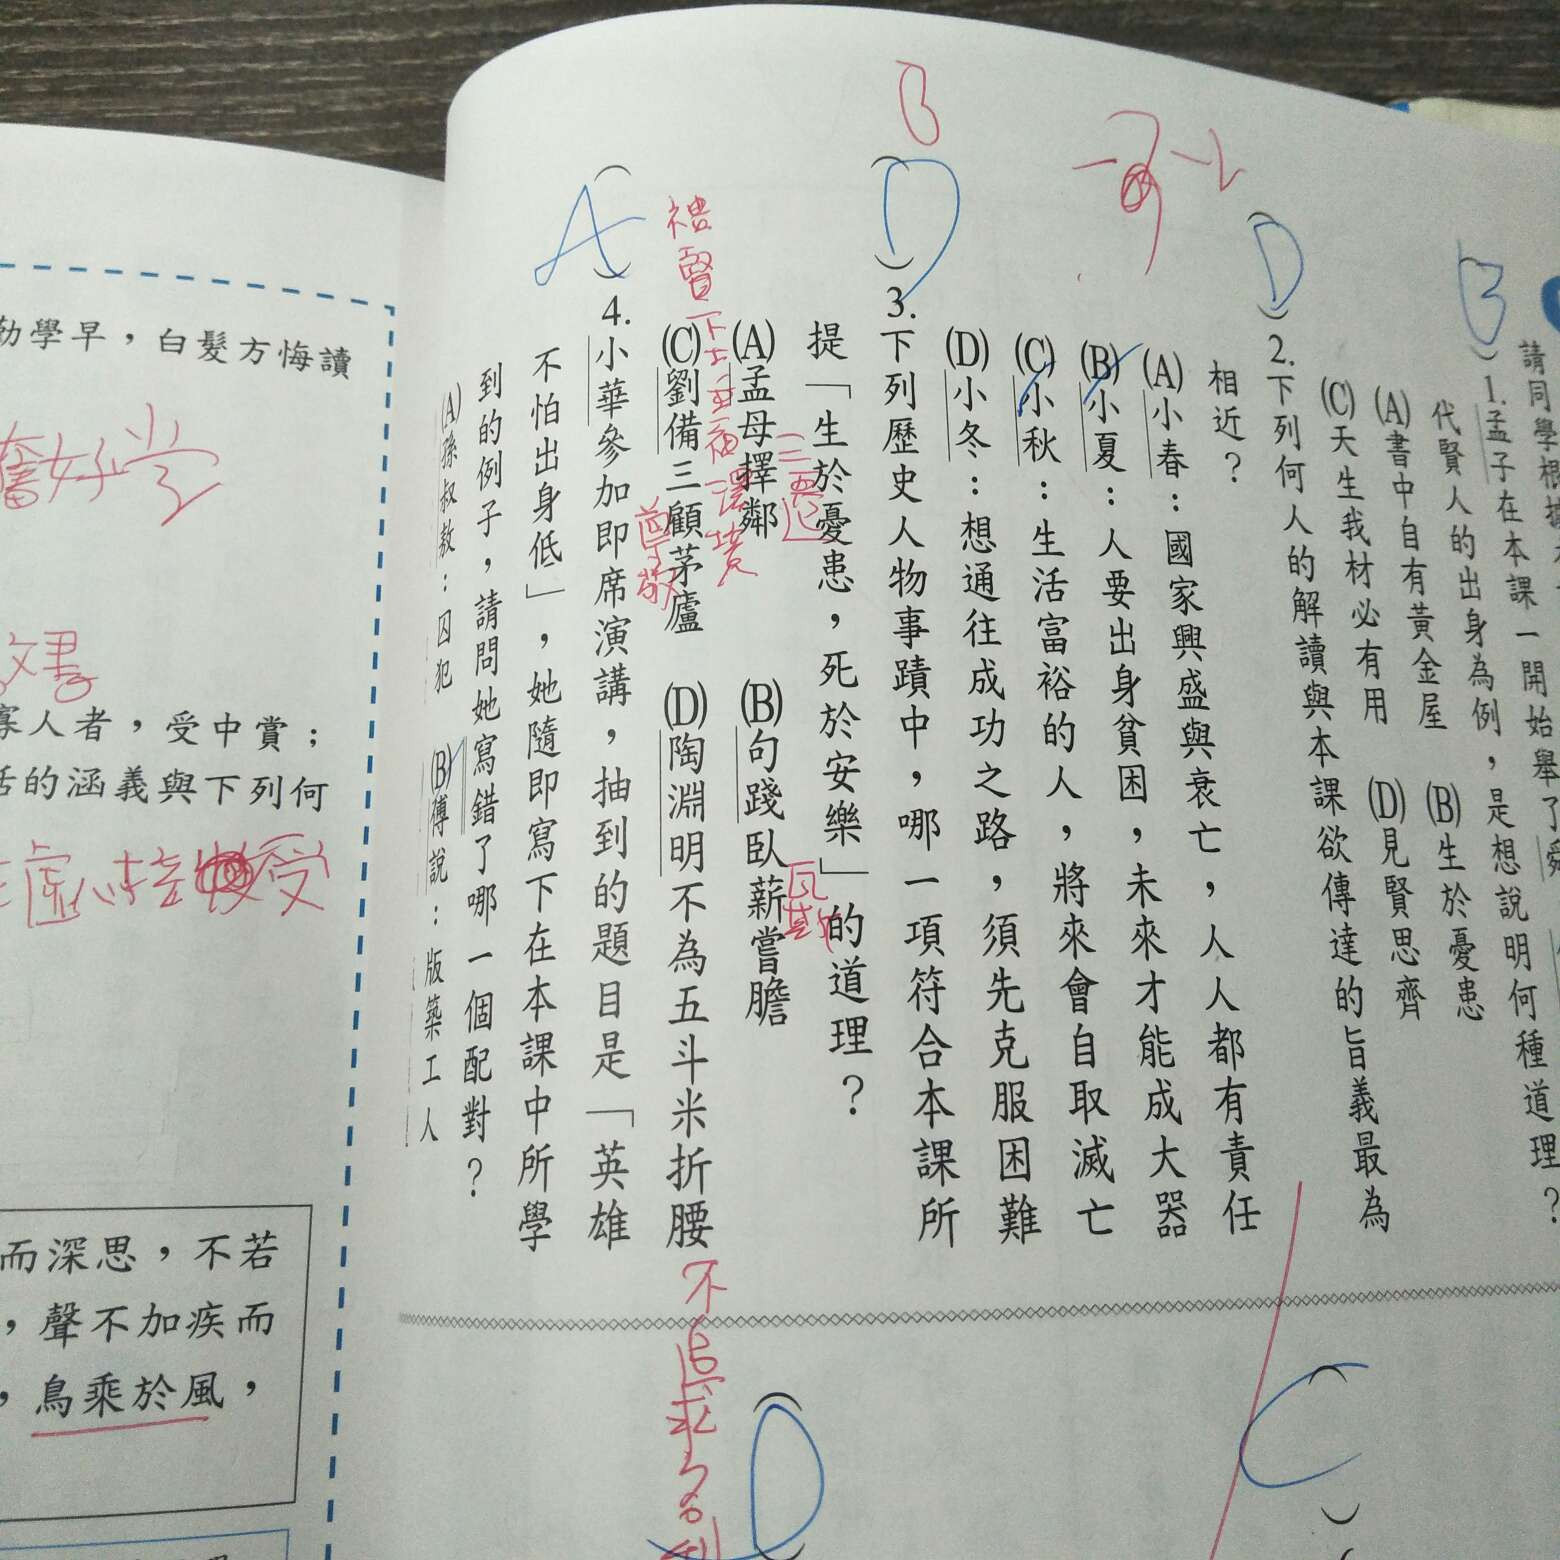 請同學根據
B
1.孟子在本課一開始舉了舜
代賢人的出身為例，是想說明何種道理？
(A)書中自有黃金屋 (B)生於憂患
(C)天生我材必有用 (D)見賢思齊
D
2.下列何人的解讀與本課欲傳達的旨義最為
相近？
(A)小春：國家興盛與衰亡，人人都有責任
(B)小夏：人要出身貧困，未來才能成大器
(C)小秋：生活富裕的人，將來會自取滅亡
(D)小冬：想通往成功之路，須先克服困難
B
D
3.下列歷史人物事蹟中，哪一項符合本課所
提「生於憂患，死於安樂」的道理？
(A)孟母擇鄰 (B)句踐臥薪嘗膽
三遷
環境
(C)劉備三顧茅廬 (D)陶淵明不為五斗米折腰
禮賢下士
尊敬
不追求名利
A
4.小華參加即席演講，抽到的題目是「英雄
不怕出身低」，她隨即寫下在本課中所學
到的例子，請問她寫錯了哪一個配對？
(A)孫叔敖：囚犯 (B)傅說：版築工人
D
C
勤學早，白髮方悔讀
奮好學
寡人者，受中賞；
話的涵義與下列何
虛心接受
而深思，不若
，聲不加疾而
，鳥乘於風，